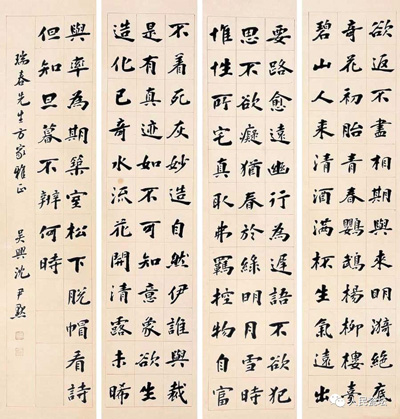 欲返不盡相期與來明漪絕底
奇花初胎青春鸚鵡楊柳樓臺
碧山人來清酒滿杯生氣遠出
要路愈遠幽行為遲語不欲犯
思不欲癡猶春於綠明月雪時
惟性所宅真取弗羈控物自富
不着死灰妙造自然伊誰與裁
是有真迹如不可知意象欲生
造化已奇水流花開清露未晞
與率為期築室松下脫帽看詩
但知旦暮不辨何時
瑞春先生方家雅正
吳興沈尹默